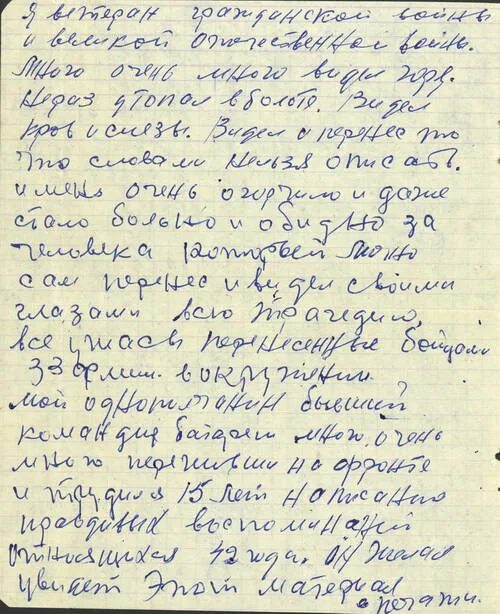 Я ветеран гражданской войны
и великой отечественной войны.
Много очень много видел горя.
Нераз утопал в болоте. Видел
кров и слезы. Видел и перенес то
что словами нельзя описать.
и меня очень огорчило и даже
стало больно и обидно за
человека который много
сам перенес и видел своими
глазами всю трагедию,
все ужасы перенесенные бойцами
33 армии. в окружении.
мой однополчанин бывший
командир батареи много, очень
много переживший на фронте
и трудился 15 лет написанию
правдивых воспоминаний
относящихся 42 года. он желал
увидет этот материал
в печати.